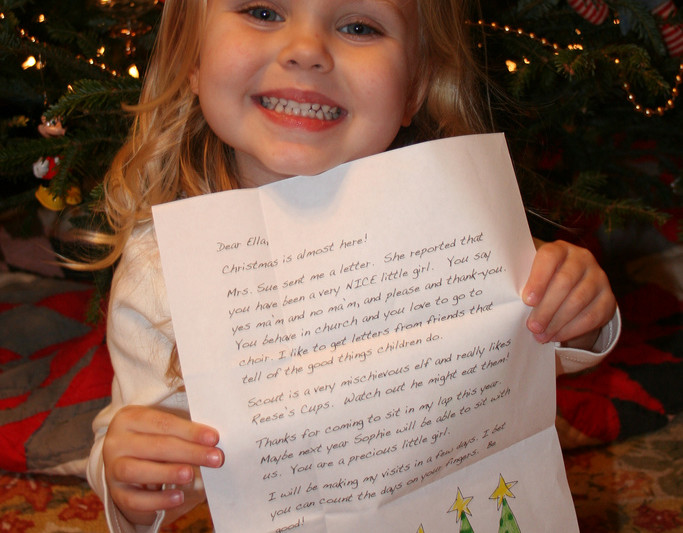 Dear Ella,
Christmas is almost here!
Mrs. Sue sent me a letter. She reported that
you have been a very NICE little girl. You say
yes ma'm and no ma'm, and please and thank-you.
You behave in church and you love to go to
choir. I like to get letters from friends that
tell of the good things children do.
Scout is a very mischievous elf and really likes
Reese's Cups. Watch out he might eat them!
Thanks for coming to sit in my lap this year.
Maybe next year Sophie will be able to sit with
us. You are a precious little girl.
I will be making my visits in a few days. I bet
you can count the days on your fingers. Be
good!